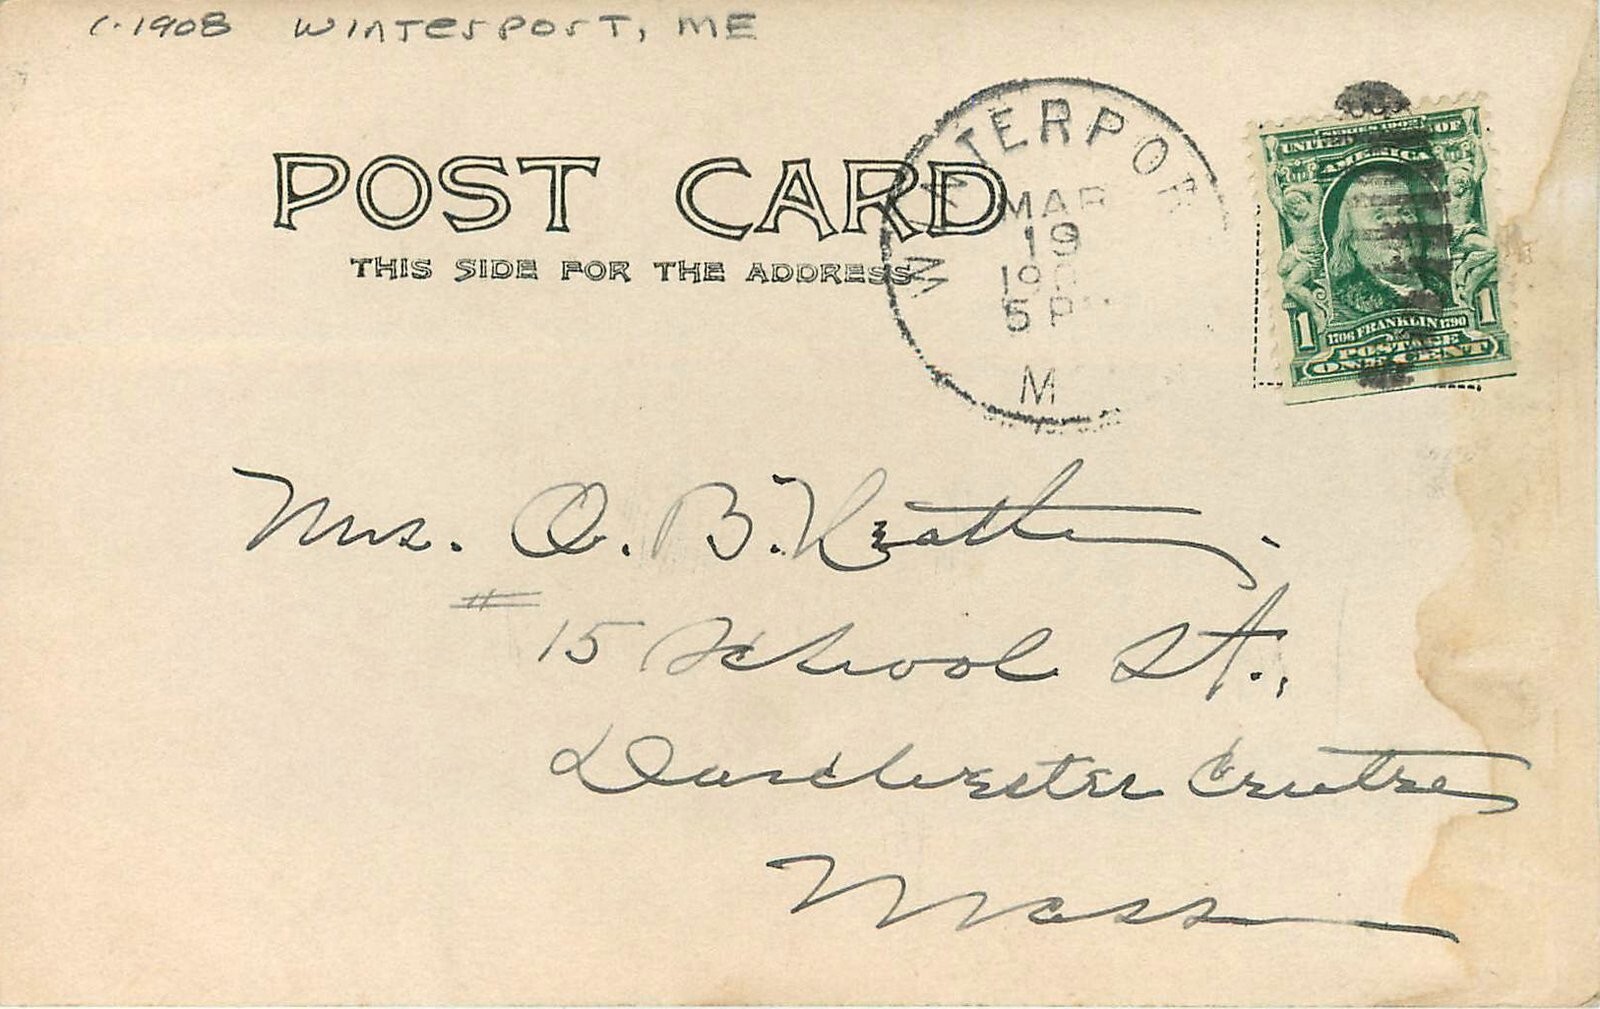 c. 1908 WINTERPORT, ME
POST CARD
THIS SIDE FOR THE ADDRESS
WINTERPOR
MAR
19
5 P
M
SERIES 1902
UNITED STATES OF
AMERICA
1 1
1706 FRANKLIN 1790
POSTAGE
ONE CENT
Mrs. O. B.
15 School St.,
Dorchester Centre
Mass